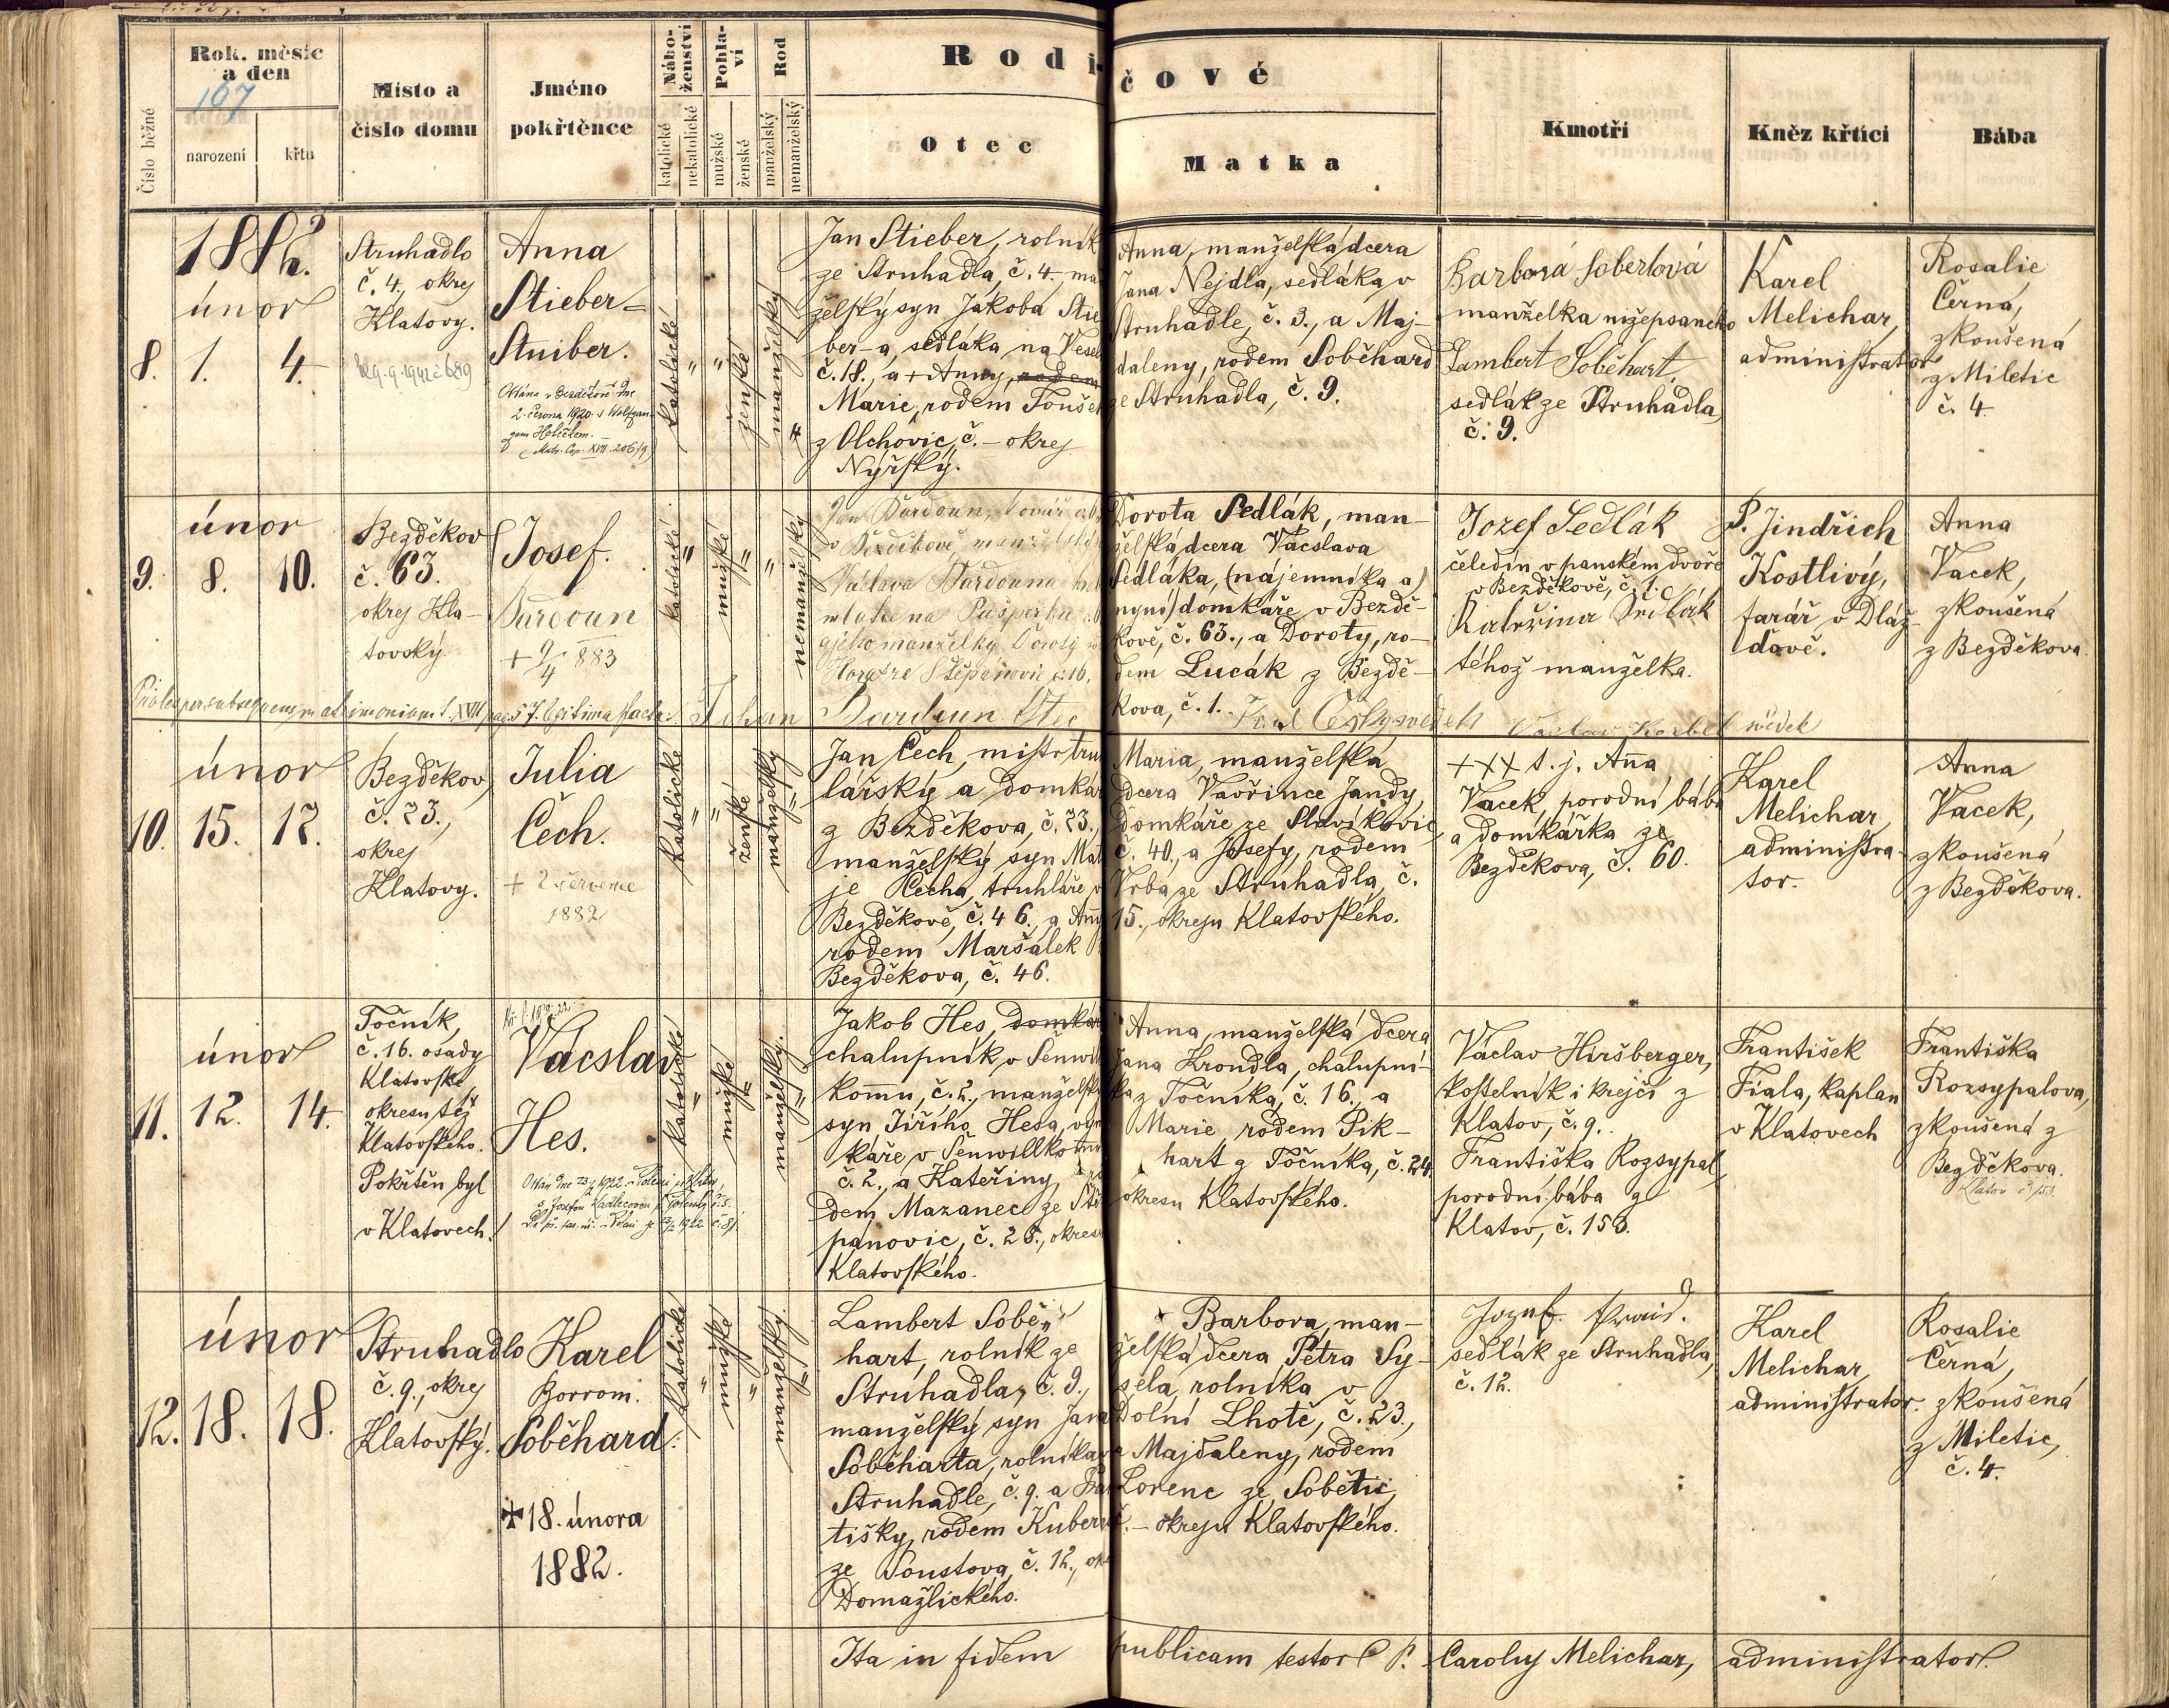 Číslo běžné
Rok, měsíc
a den
167
narození
křtu
Místo a
číslo domu
Jméno
pokřtěnce
Nábo-
ženství
katolické
nekatolické
Pohla-
ví
mužské
ženské
Rod
manželský
nemanželský
Rodi-
čové
Otec
Matka
Kmotři
Kněz křtící
Bába
1882.
únor
8. 1. 4.
Struhadlo
č. 4, okres
Klatovy.
Anna
Stieber=
Stuiber.
Oddána v Bezděkově dne
2. června 1920 s Wolfgan-
gem
katolické
" "
ženské
manželský
Jan Stieber, rolník
ze Struhadla, č. 4, ma
želský syn Jakoba Stie
ber-a, sedláka na Vesel
č. 18., a + Anny, rodem
Marie, rodem Toušek
z Olchovic, č. – okres
Nýrský.
Anna, manželská dcera
Jana Nejdla, sedláka v
Struhadle, č. 3., a Maj-
daleny, rodem Soběhard
ze Struhadla, č. 9.
Barbora Sobertová
manželka nížepsaného
Lambert Soběhart
sedlák ze Struhadla,
č. 9.
Karel
Melichar,
administrator
Rosalie
Černá,
zkoušená
z Miletic
č. 4
únor
9. 8. 10.
Bezděkov
č. 63.
okres Kla-
tovský.
Josef.
Bardoun
+ 9/4 883
katolické
"
mužské
"
"
nemanželský
Jan Bardoun, kovář
v Bezděkově, manželský
Václava Bardouna
na
a jeho manželky Doroty
Štěpánovic č. 16.
Dorota Sedlák, man-
želská dcera Vácslava
Sedláka, (nájemníka a)
nyní) domkáře v Bezdě-
kově, č. 63., a Doroty, ro-
dem Lucák z Bezdě-
kova, č. 1.
Jozef Sedlák
čeledín v panském dvoře
v Bezděkově, č. 1.
Kateřina Sedlák
téhož manželka.
P. Jindřich
Kostlivý,
farář v Dláž-
dově.
Anna
Vacek,
zkoušená
z Bezděkova.
Proles per subsequens matrimonium t. XVII pag. 57. legitima facta: Johan Bardoun Otec Karel Český svědek Václav Korbel svědek
únor
10. 15. 17.
Bezděkov,
č. 23.,
okres
Klatovy.
Julia
Čech.
+ 2 července
1882
katolické
" "
ženské
manželský
"
Jan Čech, mistr tru
lářský a domkář
z Bezděkova, č. 23.,
manželský syn Mat
je Čecha, truhláře v
Bezděkově, č. 46., a Ann
rodem Maršálek
Bezděkova, č. 46.
Maria, manželská
dcera Vavřince Jandy,
domkáře ze Slavíkovic,
č. 40., a Josefy, rodem
Vrba ze Struhadla, č.
15., okresu Klatovského.
+++ t. j. Anna
Vacek, porodní bába
a domkářka ze
Bezděkova, č. 60.
Karel
Melichar,
administra-
tor.
Anna
Vacek,
zkoušená
z Bezděkova.
únor
11. 12. 14.
Točník,
č. 16. osady
Klatovské,
okresu též
Klatovského.
Pokřtěn byl
v Klatovech.
Vácslav
Hes.
katolické
"
mužské
"
manželský.
"
Jakob Hes, domkář
chalupník v Šenwil
komu, č. 2., manželský
syn Jiřího Hesa, vým
káře v Šenwillkomu
č. 2., a Kateřiny, ro
dem Mazanec ze Ště
panovic, č. 28., okresu
Klatovského.
Anna, manželská dcera
Jana Krondla, chalupní-
ka z Točníka, č. 16., a
Marie, rodem Pik-
hart z Točníka, č. 24.
okresu Klatovského.
Václav Hiršberger,
kostelník i krejčí z
Klatov, č. 9.
Františka Rozsypal,
porodní bába z
Klatov, č. 153.
František
Fiala, kaplan
v Klatovech
Františka
Rozsypalova,
zkoušená z
Bezděkova.
Klatov č. 153.
únor
12. 18. 18.
Struhadlo
č. 9., okres
Klatovský.
Karel
Borrom.
Soběhard.
✠ 18. února
1882.
katolické
"
mužské
"
manželský.
"
Lambert Sobě„
hart, rolník ze
Struhadla, č. 9.,
manželský syn Jana
Soběharta, rolníka v
Struhadle, č. 9. a Fran
tišky, rodem Kuber
ze Poustova, č. 12., okr
Domažlického.
Barbora, man-
želská dcera Petra Sy-
sela, rolníka v
Dolní Lhotě, č. 23.,
a Majdaleny, rodem
Lorenc ze Sobětic,
č. – okresu Klatovského.
Jozef
sedlák ze Struhadla,
č. 12.
Karel
Melichar,
administrator.
Rosalie
Černá,
zkoušená
z Miletic,
č. 4.
Ita in fidem publicam testor P. Carolus Melichar, administrator.